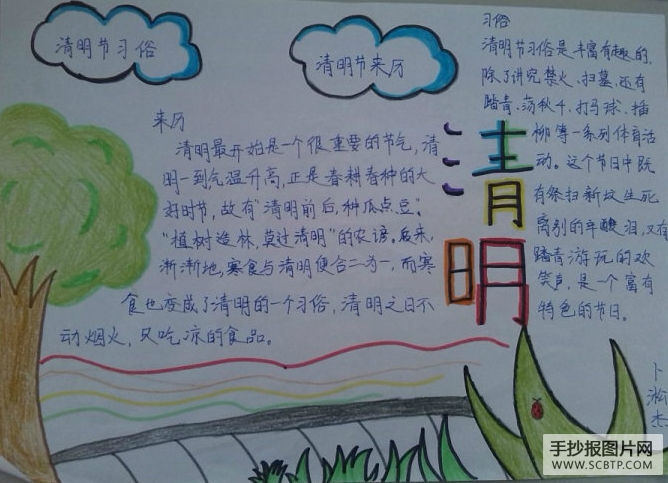 清明节习俗
清明节来历
来历
清明最开始是一个很重要的节气,清
明一到气温升高,正是春耕春种的大
好时节,故有"清明前后,种瓜点豆"。
"植树造林,莫过清明"的农谚,后来,
渐渐地,寒食与清明便合二为一,而寒
食也变成了清明的一个习俗,清明之日不
动烟火,只吃凉的食品。
清明
习俗
清明节习俗是丰富有趣的,
除了讲究禁火、扫墓,还有
踏青、荡秋千、打马球、插
柳等一系列体育活
动。这个节日中既
有祭扫新坟生死
离别的辛酸泪,又有
踏青游玩的欢
笑声,是一个富有
特色的节日。
卜淞杰
手抄报图片网
WWW.SCBTP.COM